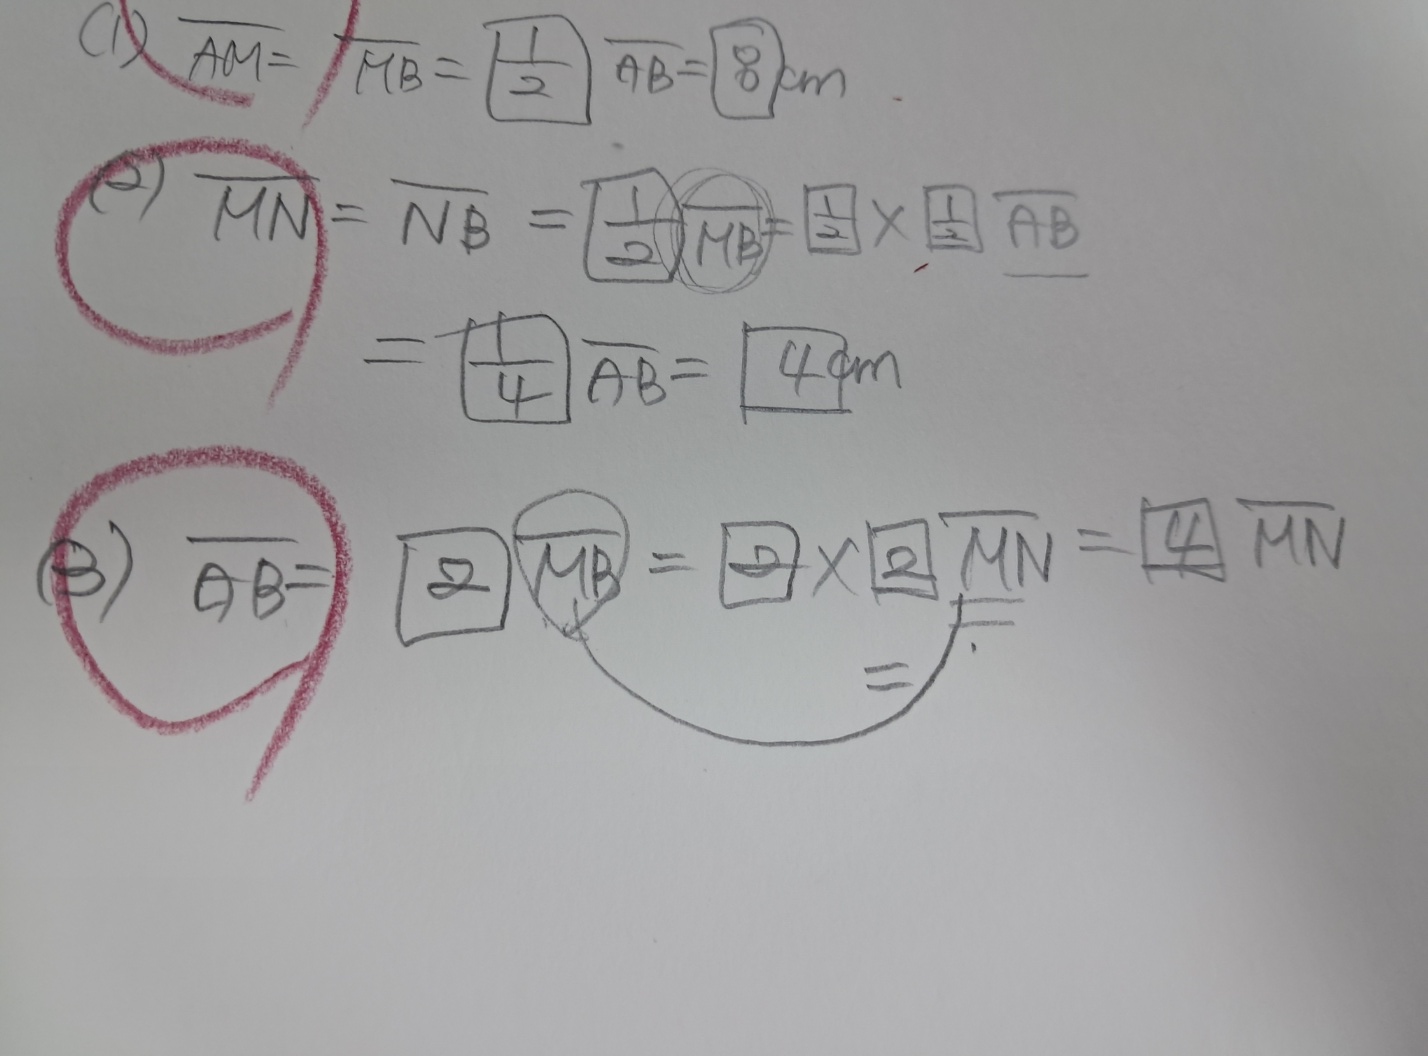 (1) AM= MB= 1/2 AB= 8 cm
(2) MN = NB = 1/2 MB = 1/2 × 1/2 AB
= 1/4 AB = 4cm
(3) AB= 2 MB = 2 × 2 MN = 4 MN
=